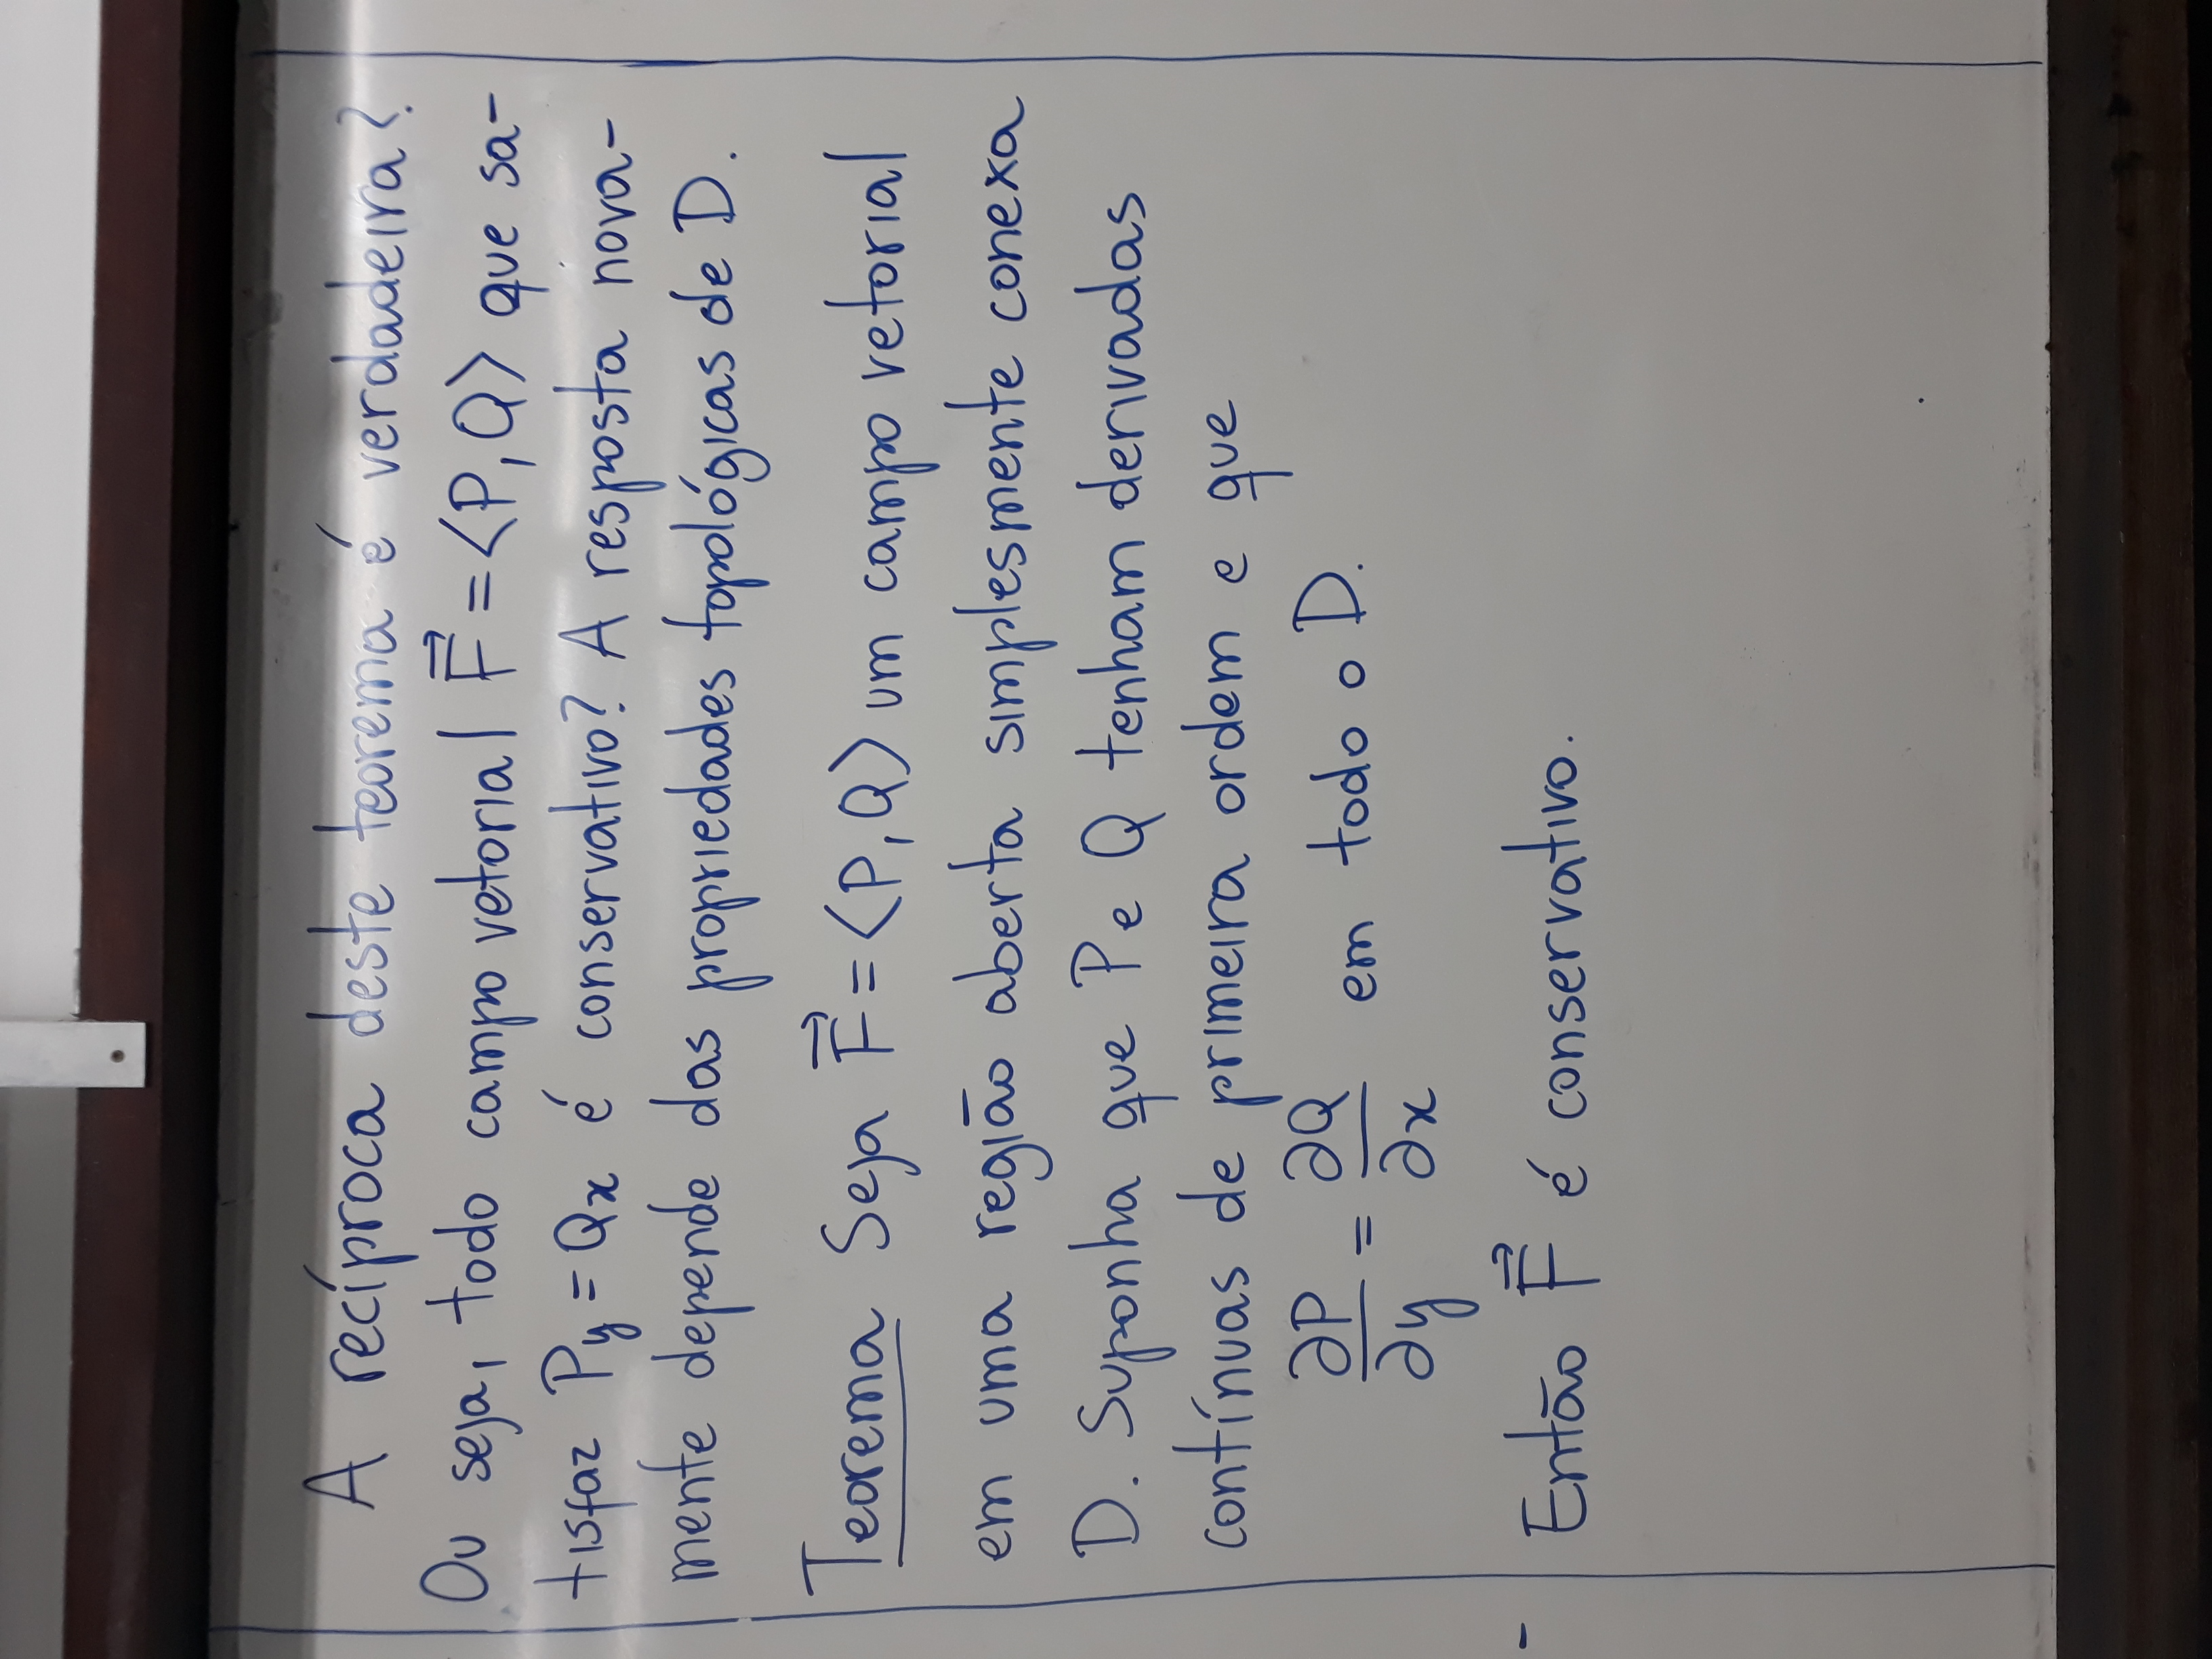 A recíproca deste teorema é verdadeira?
Ou seja, todo campo vetorial F⃗ = ⟨P, Q⟩ que sa-
tisfaz Py = Qx é conservativo? A resposta nova-
mente depende das propriedades topológicas de D.
Teorema Seja F⃗ = ⟨P, Q⟩ um campo vetorial
em uma região aberta simplesmente conexa
D. Suponha que P e Q tenham derivadas
contínuas de primeira ordem e que
∂P/∂y = ∂Q/∂x em todo o D.
Então F⃗ é conservativo.